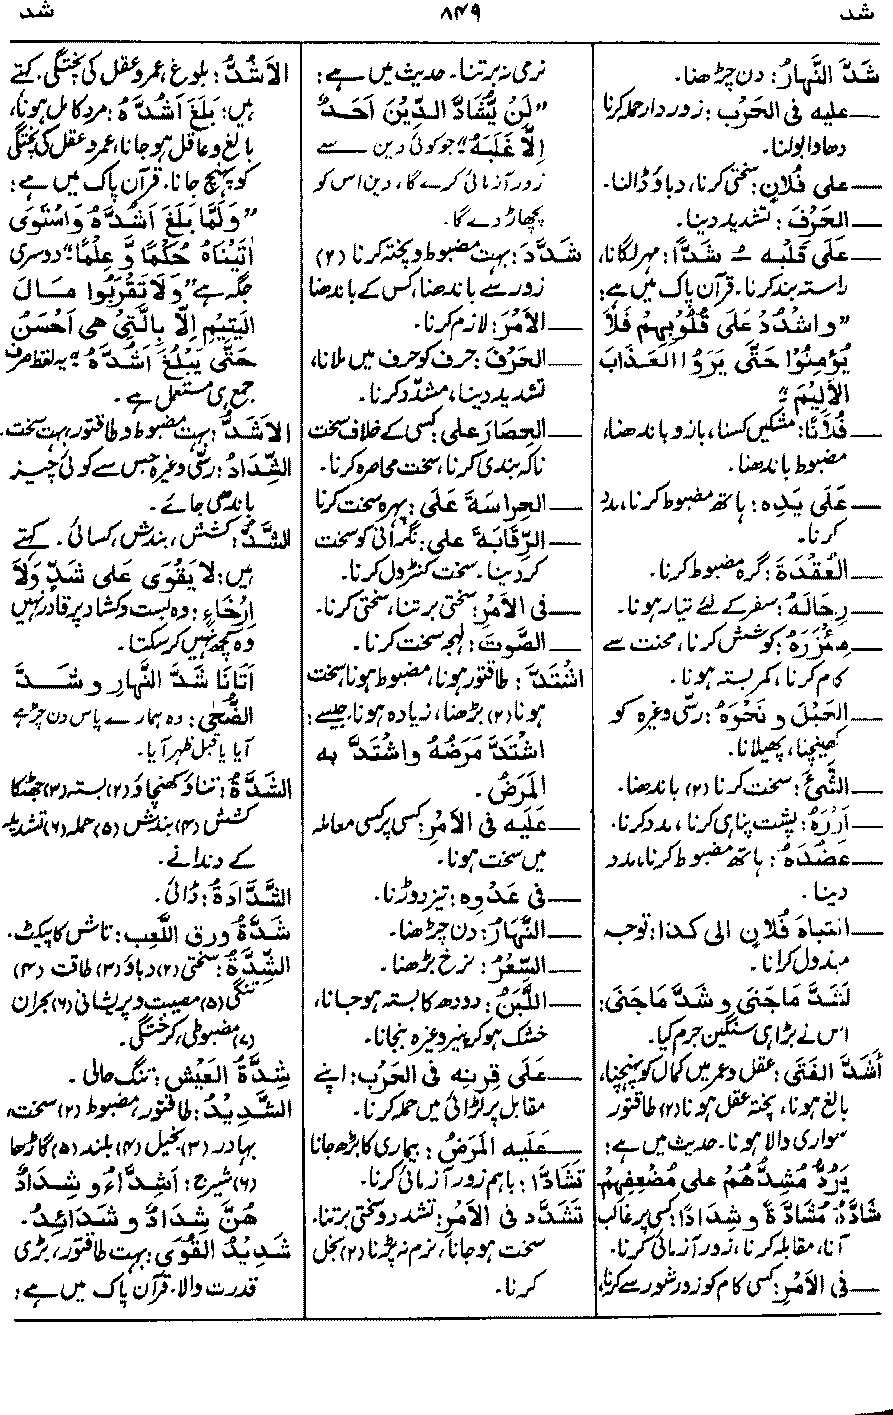 شد ۸۴۹ شد
شَدَّ النَّهارُ: دن چڑھنا۔
ــــ علیه فی الحَرْب: زور دار حملہ کرنا
دھاوا بولنا۔
ــــ علی فُلانٍ: سختی کرنا، دباؤ ڈالنا۔
ــــ الحَرْفَ: تشدید دینا۔
ــــ عَلَی قَلْبِه ــُـ شَدًّا: مہر لگانا،
راستہ بند کرنا۔ قرآن پاک میں ہے:
”وَاشْدُدْ عَلَی قُلُوبِهِمْ فَلَا
يُؤْمِنُوا حَتَّی يَرَوُا العَذَابَ
الأَلِيْمَ“
ــــ فُلَانًا: مشکیں کسنا، بازو باندھنا،
مضبوط باندھنا۔
ــــ عَلَی يَدِهِ: ہاتھ مضبوط کرنا، مدد
کرنا۔
ــــ العُقْدَةَ: گرہ مضبوط کرنا۔
ــــ رِحَالَهُ: سفر کے لئے تیار ہونا۔
ــــ مِئْزَرَهُ: کوشش کرنا، محنت سے
کام کرنا، کمر بستہ ہونا۔
ــــ الحَبْلَ و نَحْوَهُ: رسّی وغیرہ کو
کھینچنا، پھیلانا۔
ــــ الشَّیْءَ: سخت کرنا (۲) باندھنا۔
ــــ أَزْرَهُ: پشت پناہی کرنا، مدد کرنا۔
ــــ عَضُدَهُ: ہاتھ مضبوط کرنا، مدد
دینا۔
ــــ انتباهَ فُلَانٍ الی کذا: توجہ
مبذول کرانا۔
لَشَدَّ مَا جَنَی و شَدَّ مَا جَنَی:
اس نے بڑا ہی سنگین جرم کیا۔
أَشَدَّ الفَتَی: عقل و عمر میں کمال کو پہنچنا،
بالغ ہونا، پختہ عقل ہونا (۲) طاقتور
سواری والا ہونا۔ حدیث میں ہے:
يَرُدُّ مُشِدُّهُمْ علی مُضْعِفِهِمْ
شَادَّهُ مُشَادَّةً و شِدَادًا: کسی پر غالب
آنا، مقابلہ کرنا، زور آزمائی کرنا۔
ــــ فی الأمْرِ: کسی کام کو زور شور سے کرنا،
نرمی نہ برتنا۔ حدیث میں ہے:
”لَنْ يُّشَادَّ الدِّيْنَ اَحَدٌ
اِلَّا غَلَبَهُ“ جو کوئی دین سے
زور آزمائی کرے گا، دین اس کو
پچھاڑ دے گا۔
شَدَّدَ: بہت مضبوط و پختہ کرنا (۲)
زور سے باندھنا، کس کے باندھنا
ــــ الأَمْرَ: لازم کرنا۔
ــــ الحَرْفَ: حرف کو حرف میں ملانا،
تشدید دینا، مشدّد کرنا۔
ــــ الحِصَارَ علی: کسی کے خلاف سخت
ناکہ بندی کرنا، سخت محاصرہ کرنا۔
ــــ الحِراسَةَ عَلَی: پہرہ سخت کرنا
ــــ الرَّقابَةَ علی: نگرانی کو سخت
کر دینا۔ سخت کنٹرول کرنا۔
ــــ فی الأَمْرِ: سختی برتنا، سختی کرنا۔
ــــ الصَّوتَ: لہجہ سخت کرنا۔
اشْتَدَّ: طاقتور ہونا، مضبوط ہونا، سخت
ہونا (۲) بڑھنا، زیادہ ہونا، جیسے:
اشْتَدَّ مَرَضُهُ واشْتَدَّ بِه
المَرَضُ۔
ــــ عَلَيْهِ فی الأَمْرِ: کسی پر کسی معاملہ
میں سخت ہونا۔
ــــ فی عَدْوِه: تیز دوڑنا۔
ــــ النَّهارُ: دن چڑھنا۔
ــــ السِّعْرُ: نرخ بڑھنا۔
ــــ اللَّبَنُ: دودھ کا بستہ ہو جانا،
خشک ہو کر پنیر وغیرہ بنجانا۔
ــــ عَلَی قِرْنِه فی الحَرْب: اپنے
مقابل پر لڑائی میں حملہ کرنا۔
ــــ عَلَيْهِ المَرَضُ: بیماری کا بڑھ جانا
تَشَادَّا: باہم زور آزمائی کرنا۔
تَشَدَّدَ فی الأَمْرِ: تشدد و سختی برتنا،
سخت ہو جانا، نرم نہ پڑنا (۲) بخل
کرنا۔
الأَشُدُّ: بلوغ، عمر و عقل کی پختگی۔ کہتے
ہیں: بَلَغَ اَشُدَّهُ: مرد کامل ہونا،
بالغ و عاقل ہو جانا، عمر و عقل کی پختگی
کو پہنچ جانا۔ قرآن پاک میں ہے:
”وَلَمَّا بَلَغَ اَشُدَّهُ وَاسْتَوَی
اٰتَيْنَاهُ حُكْمًا وَّ عِلْمًا“ دوسری
جگہ ہے ”وَلَا تَقْرَبُوا مَالَ
الْيَتِيْمِ اِلَّا بِالَّتِیْ هِیَ اَحْسَنُ
حَتّٰی يَبْلُغَ اَشُدَّهُ“ یہ لفظ صرف
جمع ہی مستعمل ہے۔
الأَشَدُّ: بہت مضبوط و طاقتور، بہت سخت۔
الشِّدَادُ: رسّی وغیرہ جس سے کوئی چیز
باندھی جائے۔
الشَّدُّ: کشش، بندش، کسائی۔ کہتے
ہیں: لَا يَقْوَی عَلَی شَدٍّ وَلَا
إرْخَاءٍ: وہ بست و کشاد پر قادر نہیں
وہ کچھ نہیں کرسکتا۔
أَتَانَا شَدَّ النَّهارِ و شَدَّ
الضُّحَی: وہ ہمارے پاس دن چڑھے
آیا یا قبل ظہر آیا۔
الشَّدَّةُ: تناؤ کھنچاؤ (۲) بستہ (۳) جھٹکا
کشش (۴) بندش (۵) حملہ (۶) تشدید
کے دندانے۔
الشَّدَّادَةُ: ڈائی۔
شَدَّةُ ورقِ اللَّعِب: تاش کا پیکٹ۔
الشِّدَّةُ: سختی (۲) دباؤ (۳) طاقت (۴)
تنگی (۵) مصیبت و پریشانی (۶) بحران
(۷) مضبوطی، کرختگی۔
شِدَّةُ العَيْش: تنگ حالی۔
الشَّدِيْدُ: طاقتور، مضبوط (۲) سخت،
بہادر (۳) بخیل (۴) بلند (۵) گاڑھا
(۶) شیر ج: أَشِدَّاءُ و شِدَادٌ
هُنَّ شِدَادٌ و شَدَائِدُ۔
شَدِيْدُ القُوَی: بہت طاقتور، بڑی
قدرت والا۔ قرآن پاک میں ہے: